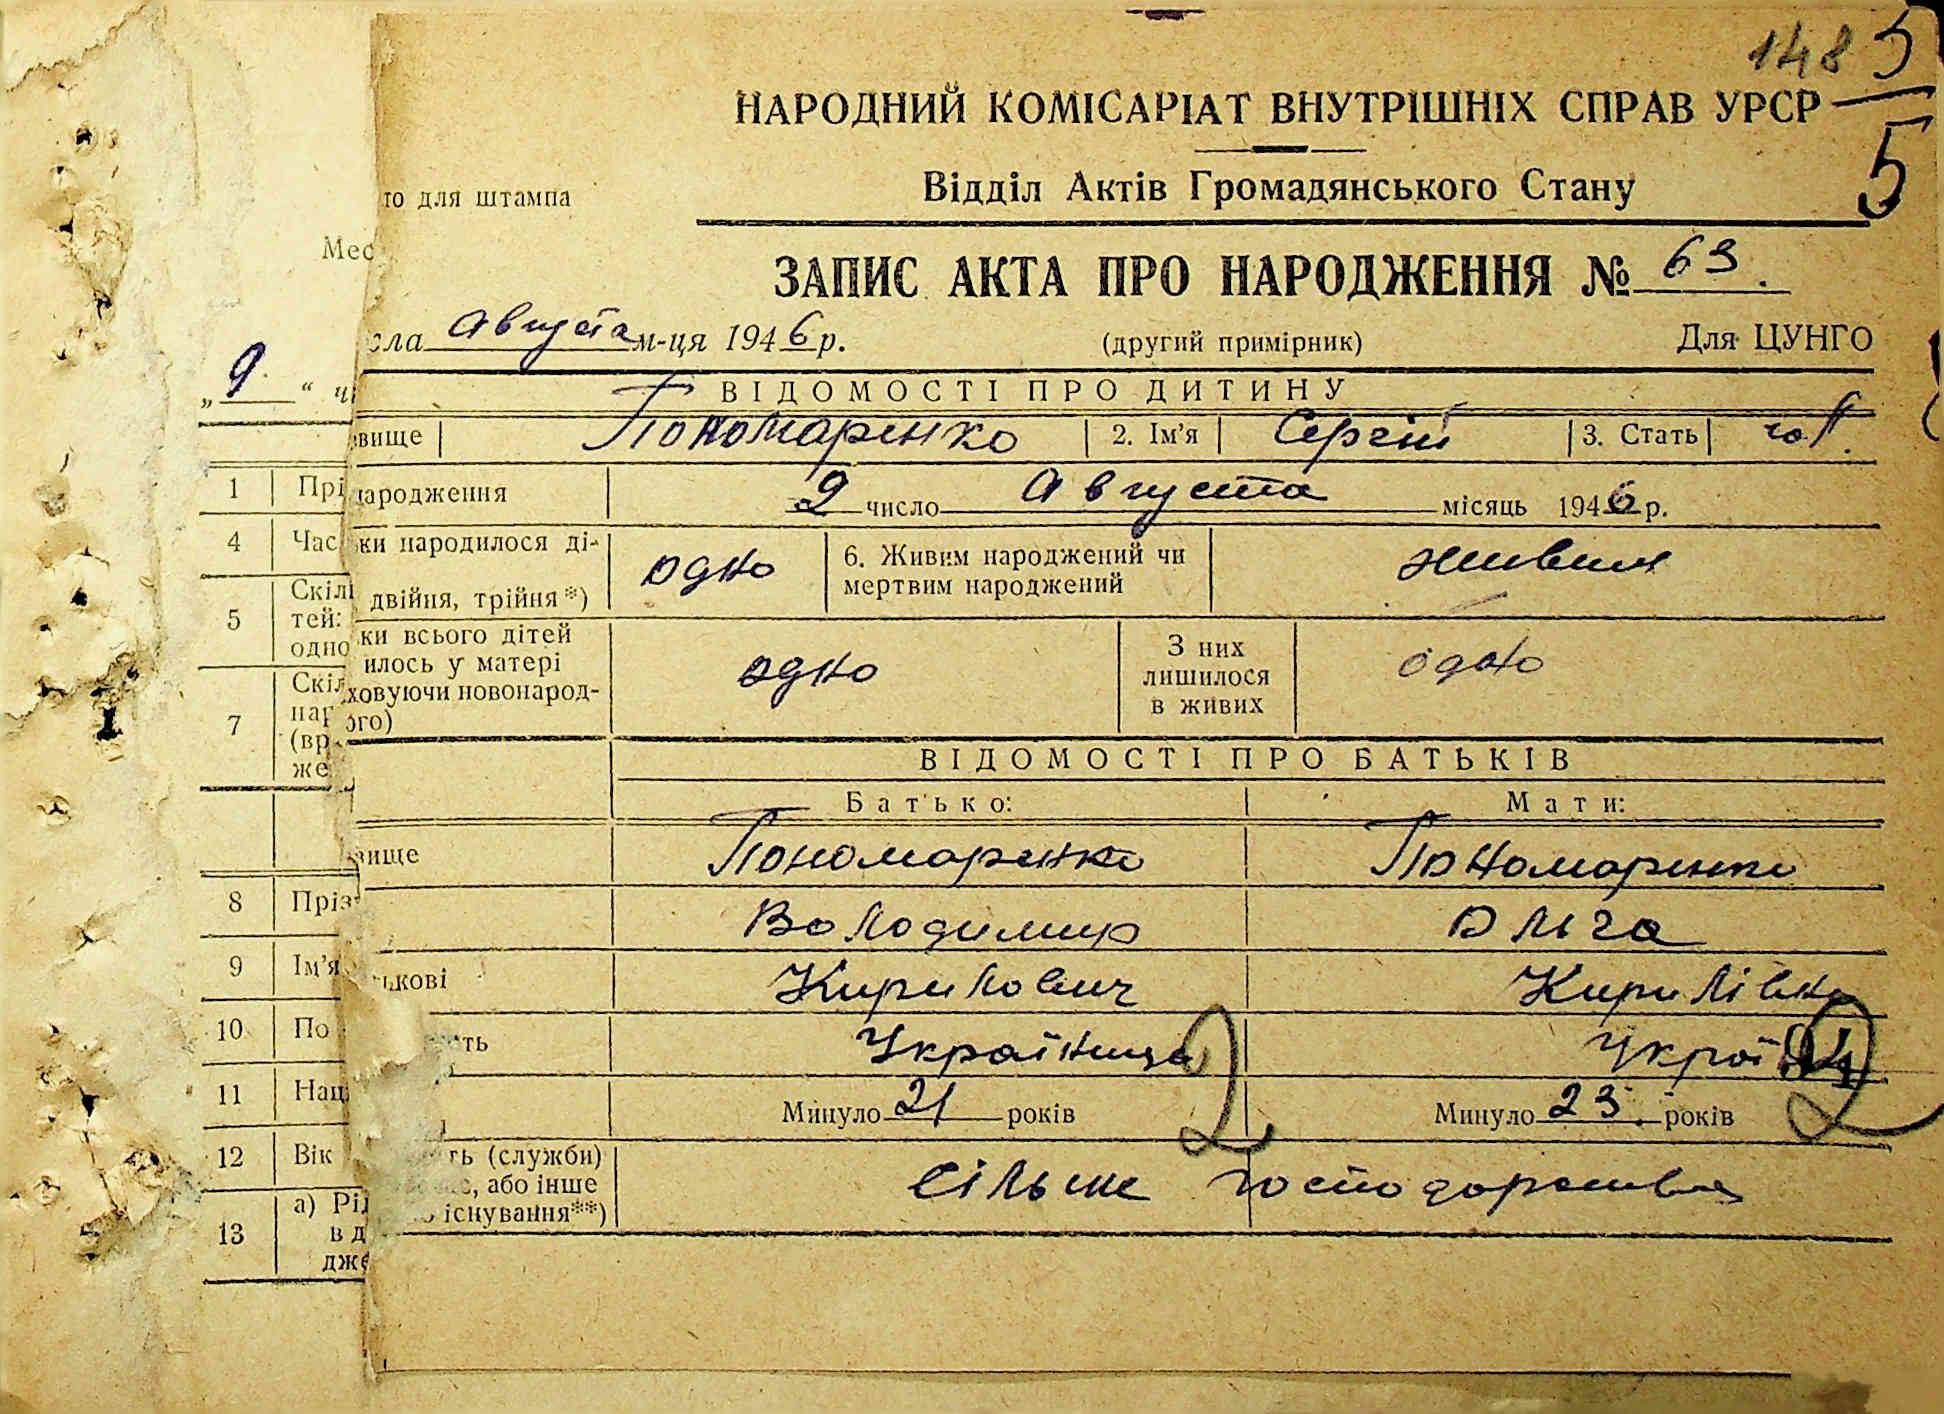 148 5
5
НАРОДНИЙ КОМІСАРІАТ ВНУТРІШНІХ СПРАВ УРСР
то для штампа
Відділ Актів Громадянського Стану
Мес
ЗАПИС АКТА ПРО НАРОДЖЕННЯ № 63.
„9“ чи сла Августа м-ця 1946 р. (другий примірник) Для ЦУНГО
ВІДОМОСТІ ПРО ДИТИНУ
звище | Пономаренко | 2. Ім’я | Сергій | 3. Стать | чол.
1 Прі
народження 2 число Августа місяць 1946 р.
4 Час
ки народилося ді-
двійня, трійня*) одно 6. Живим народжений чи мертвим народжений живим
5 Скіл
тей:
одно
ки всього дітей
илось у матері
ховуючи новонарод-
ого) одно З них лишилося в живих одно
7 Скіл
нар
(вр
же
ВІДОМОСТІ ПРО БАТЬКІВ
Батько: Мати:
вище Пономаренко Пономаренко
8 Пріз
Володимир Ольга
9 Ім’я
ькові Кирилович Кирилівна
10 По
ість Українца Украї
2 2
11 Нац
Минуло 21 років Минуло 23 років
12 Вік
ть (служби)
, або інше
існування**) сільське господарство
13 а) Рід
в д
дже